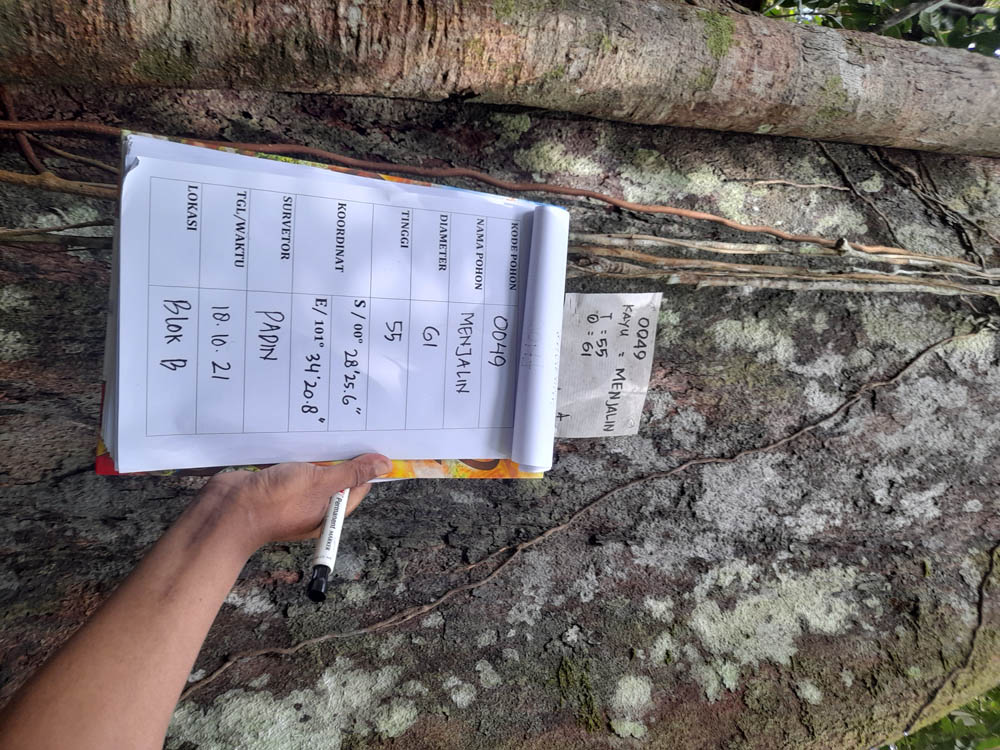 0049
KAYU = MENJALIN
T = 55
Ø = 61
KODE POHON 0049
NAMA POHON MENJALIN
DIAMETER 61
TINGGI 55
KOORDINAT S / 00° 28'25.6"
E/ 101° 34'20.8"
SURVETOR PADIN
TGL/WAKTU 10.10.21
LOKASI BLOK B
Permanent MARKER